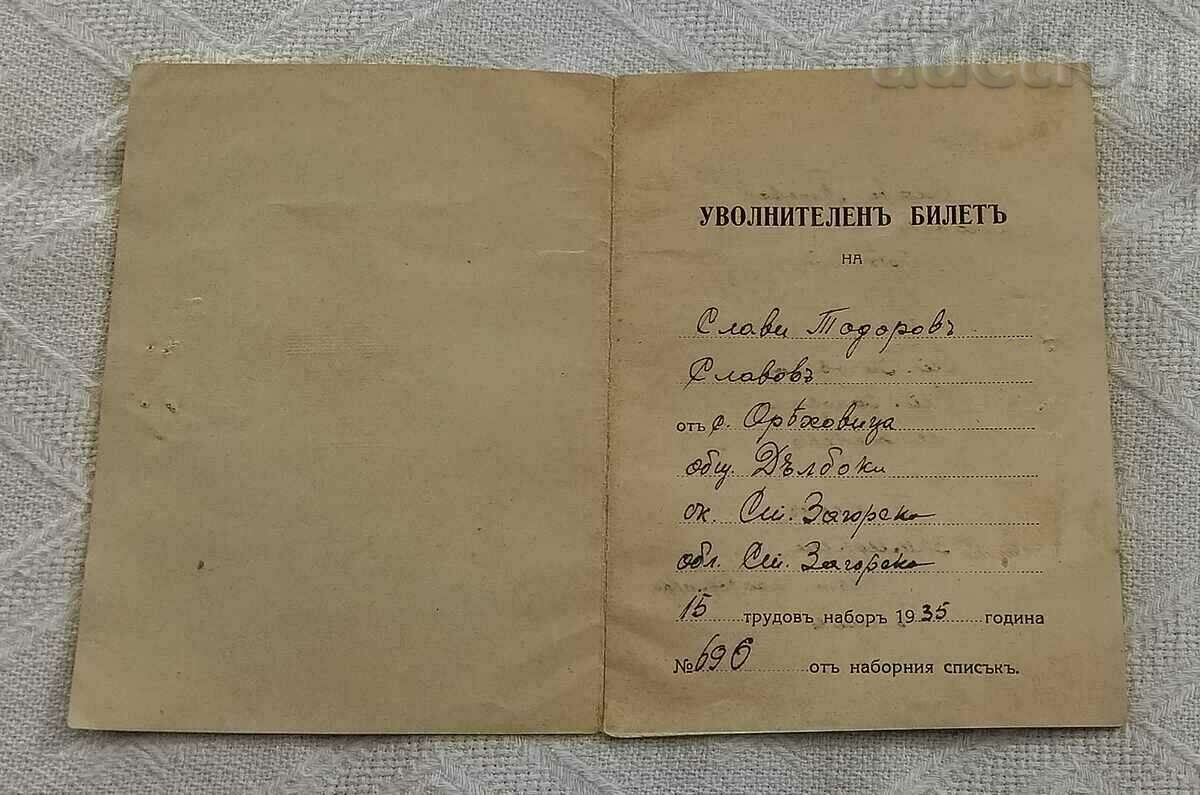 auction
УВОЛНИТЕЛЕНЪ БИЛЕТЪ
НА
Слави Тодоровъ
Славовъ
отъ с. Орѣховица
общ. Дълбоки
ок. Ст. Загорска
обл. Ст. Загорска
15 трудовъ наборъ 1935 година
№ 696 отъ наборния списъкъ.